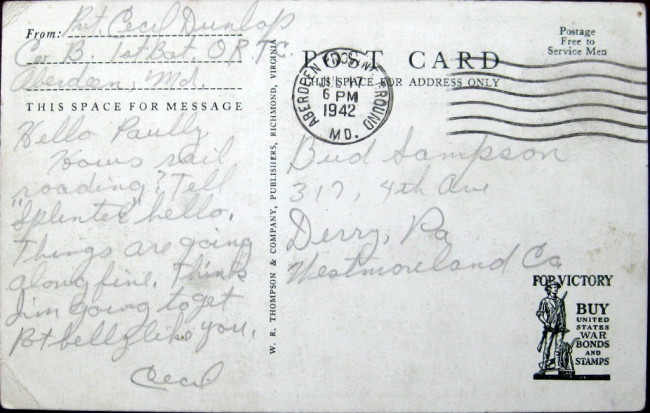 From: Pvt. Cecil Dunlap
Co B. 1st Bat. O.R.T.C.
Aberdeen, Md.
THIS SPACE FOR MESSAGE
Hello Paully
Hows rail
roading? Tell
"Splenter" hello.
Things are going
along fine. Think
Im going to get
Pot belly like you.
Cecil
W. R. THOMPSON & COMPANY, PUBLISHERS, RICHMOND, VIRGINIA
POST CARD
THIS SPACE FOR ADDRESS ONLY
Postage
Free to
Service Men
ABERDEEN PROVING GROUND
17
6 PM
1942
MD.
Bud Sampson
317, 4th Ave
Derry, Pa
Westmoreland Co.
FOR VICTORY
BUY
UNITED
STATES
WAR
BONDS
AND
STAMPS